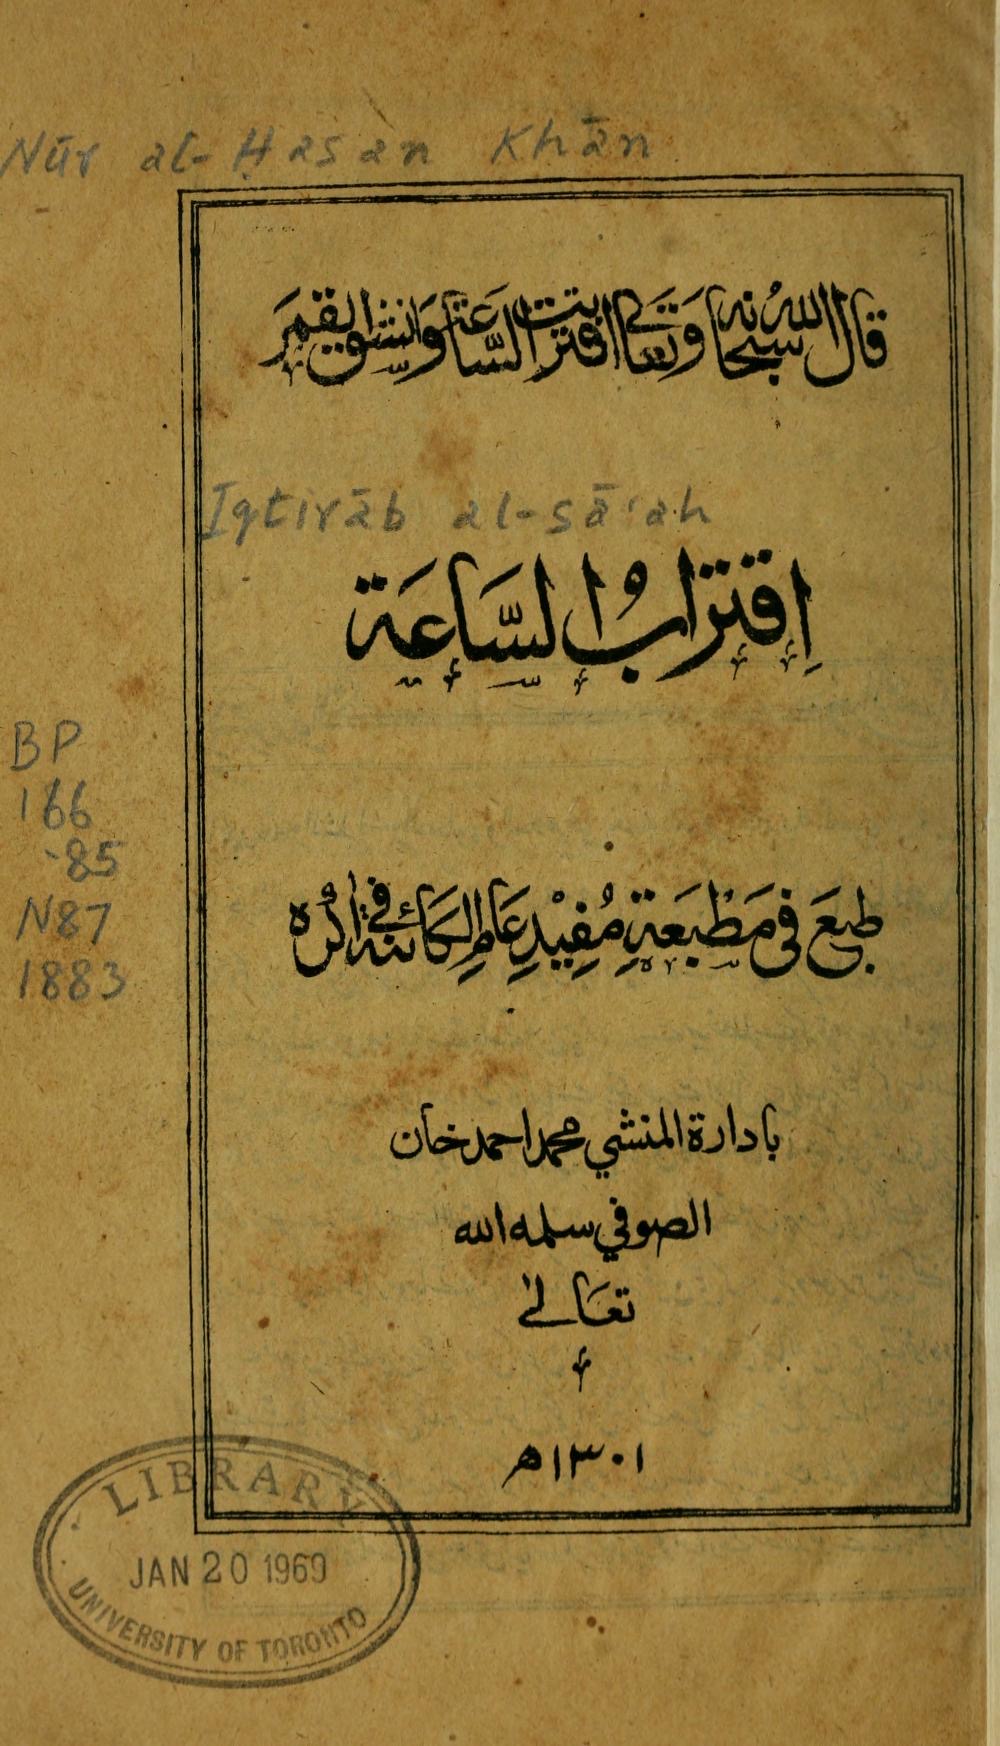 Nūr al-Ḥasan Khān
قال الله سبحانه وتعالى اقتربت السَّاعَة وَانشق القَمَرَ
Iqtirāb al-sā'ah
اِقتِرَابُ السَّاعَة
BP
166
.85
N87
1883
طبِعَ فى مَطْبَعَةِ مُفِيْدِ عَامِ الكَائنة فى اكره
بادارة المنشي محمد احمد خان
الصوفي سلمه الله
تعَالىٰ
١٣٠١ه
LIBRARY
JAN 20 1969
UNIVERSITY OF TORONTO